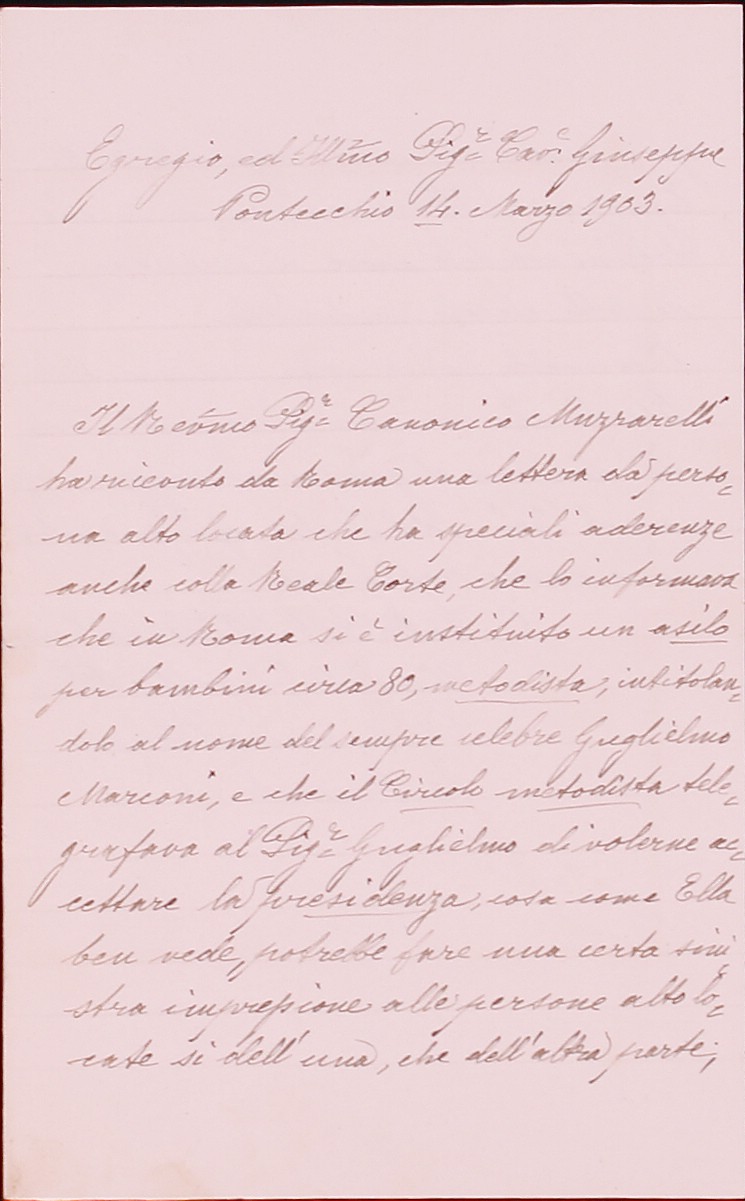 Egregio, ed Illmo Sigr Cavre Giuseppe
Pontecchio 14. Marzo 1903.
Il Revmo Sigr Canonico Muzzarelli
ha ricevuto da Roma una lettera da perso-
na alto locata che ha speciali aderenze
anche colla Reale Corte, che lo informava
che in Roma si è instituito un asilo
per bambini circa 80, metodista, intitolan-
dolo al nome del sempre celebre Guglielmo
Marconi, e che il Circolo metodista tele-
grafava al Sigr Guglielmo di volerne ac-
cettare la presidenza, cosa come Ella
ben vede, potrebbe fare una certa sini-
stra impressione alle persone alto lo-
cate sì dell'una, che dell'altra parte;